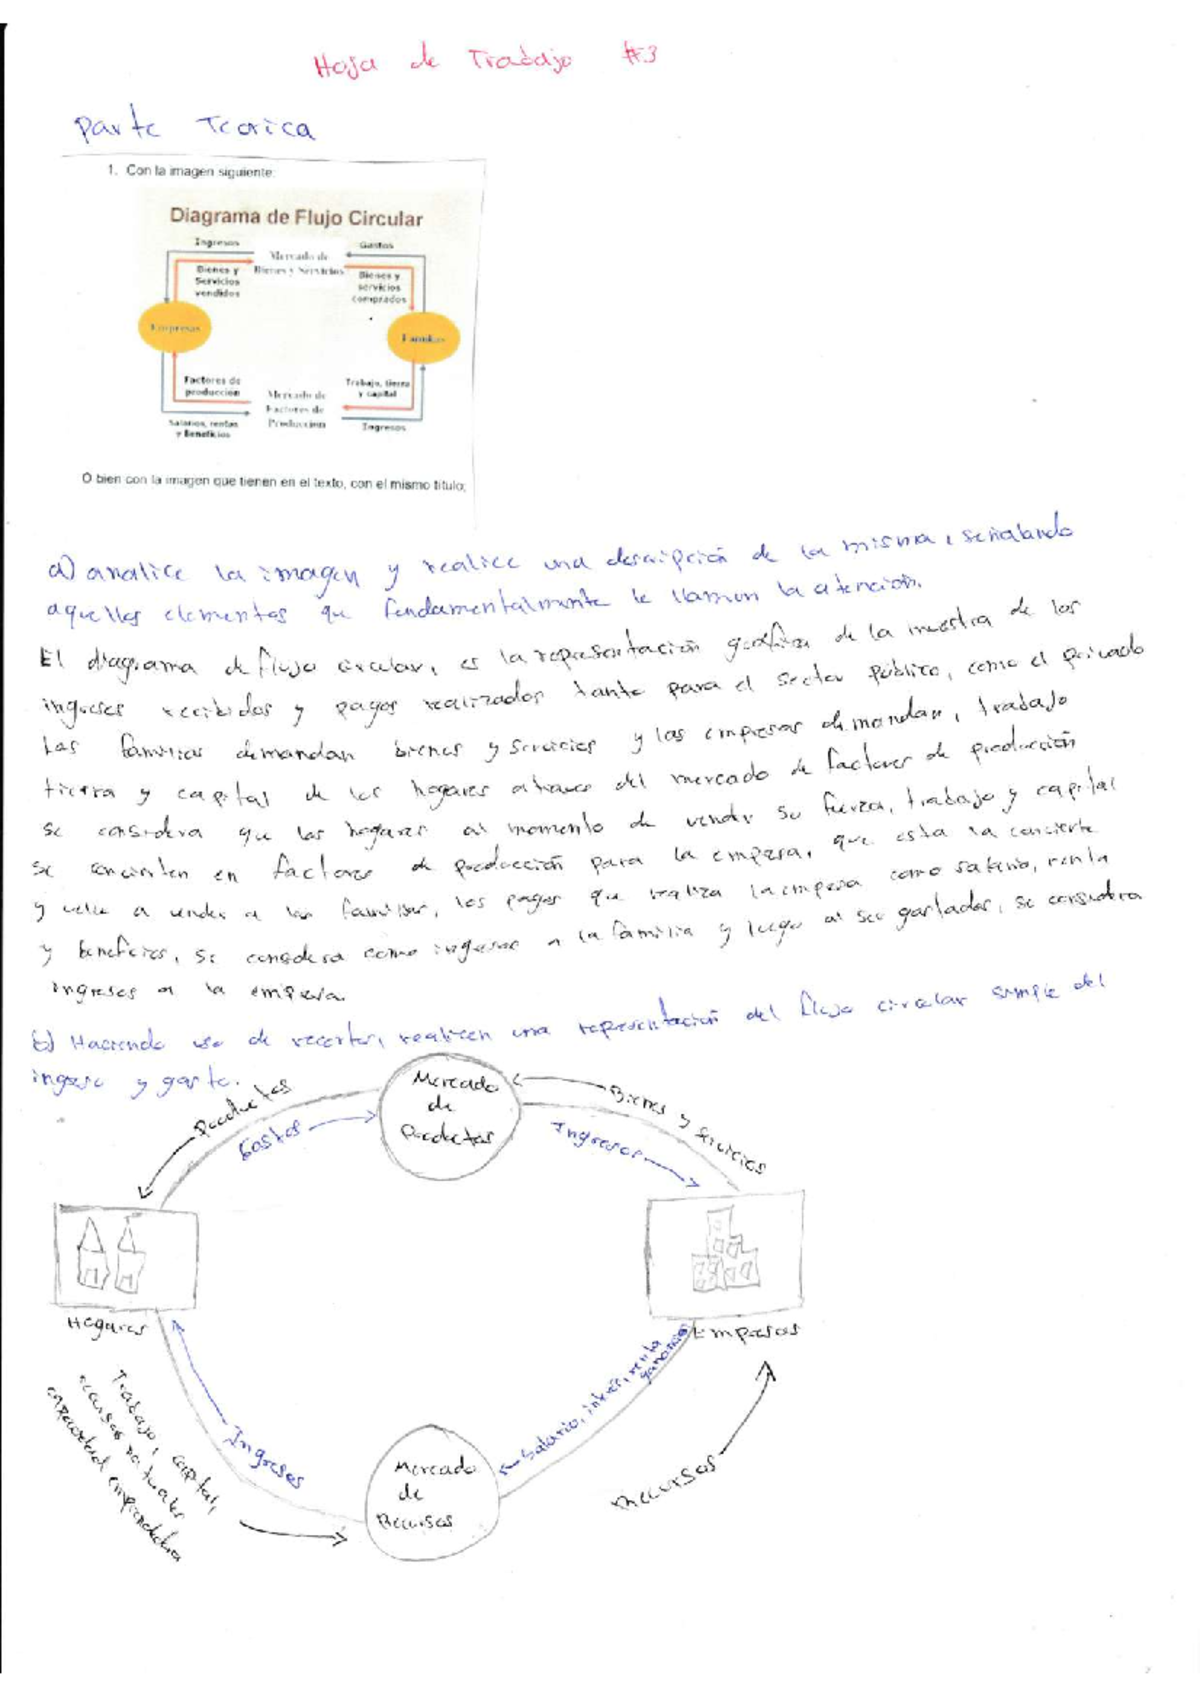 Hoja de Trabajo #3
Parte Teorica
1. Con la imagen siguiente:
Diagrama de Flujo Circular
Ingresos
Gastos
Mercado de
Bienes y Servicios
Bienes y
Servicios
vendidos
Bienes y
servicios
comprados
Empresas
Familias
Factores de
produccion
Trabajo, tierra
y capital
Mercado de
Factores de
Produccion
Salarios, rentas
y Beneficios
Ingresos
O bien con la imagen que tienen en el texto, con el mismo titulo;
a) analice la imagen y realice una descripción de la misma, señalando
aquellos elementos que fundamentalmente le llaman la atención.
El diagrama de flujo circular, es la representación grafica de la muestra de los
ingresos recibidos y pagos realizados tanto para el sector público, como el privado
Las familias demandan bienes y servicios y las empresas demandan, trabajo
tierra y capital de los hogares atraves del mercado de factores de producción
se considera que los hogares al momento de vender su fuerza, trabajo y capital
se convierten en factores de producción para la empresa, que esta la convierte
y velve a vender a las familias, los pagos que realiza la empresa como salario, renta
y beneficios, se considera como ingresos a la familia y luego al ser gastados, se considera
ingresos a la empresa.
b) Haciendo uso de recortes, realicen una representación del flujo circular simple del
ingreso y gasto.
Productos
Gastos
Mercado
de
Productos
Bienes y Servicios
Ingresos
Hogares
Empresas
Trabajo, capital,
recursos naturales
capacidad emprendedora
Ingresos
Mercado
de
Recursos
Salario, interés, renta
ganancias
recursos